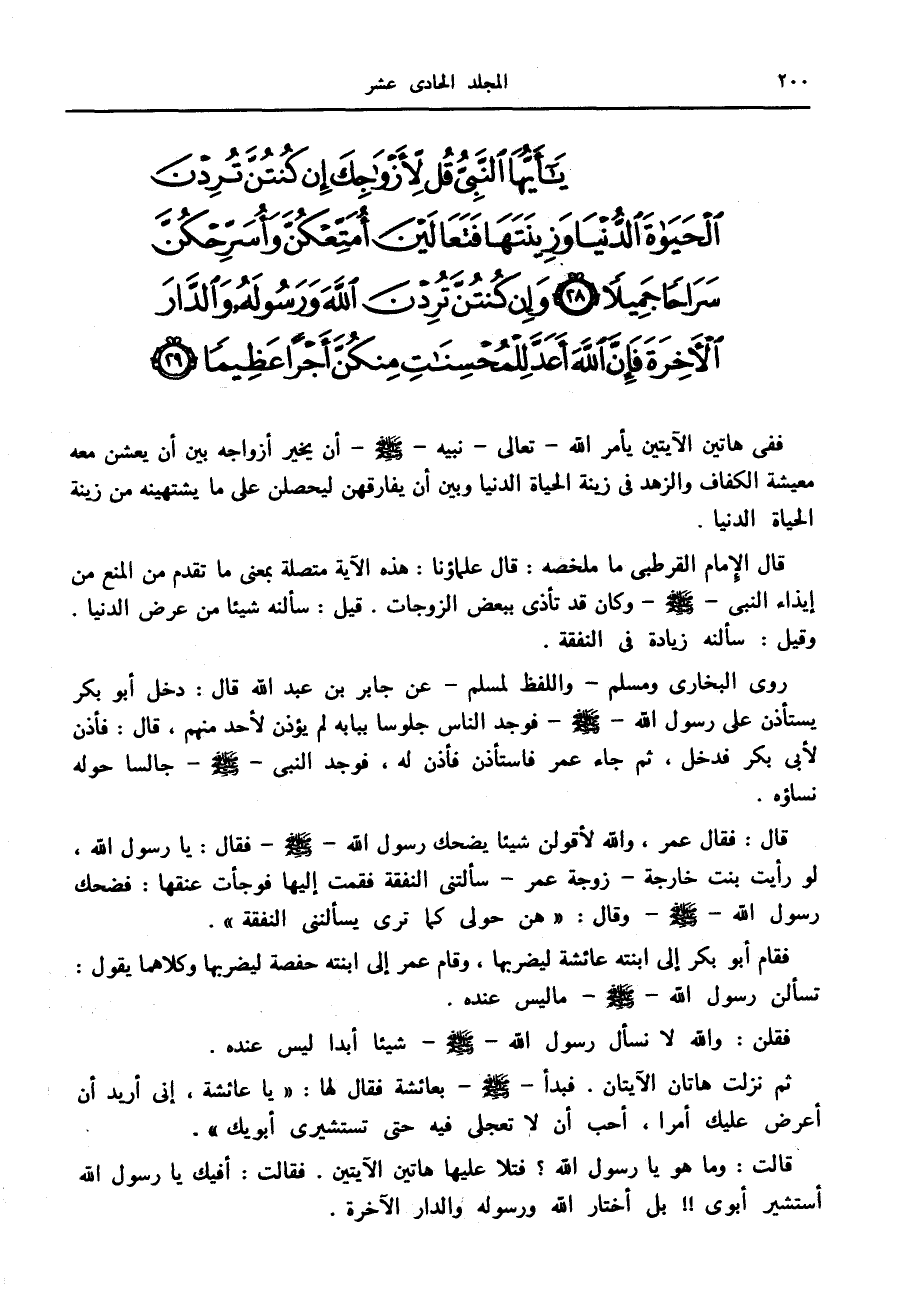 ٢٠٠ المجلد الحادى عشر
يَٰٓأَيُّهَا ٱلنَّبِىُّ قُل لِّأَزْوَٰجِكَ إِن كُنتُنَّ تُرِدْنَ
ٱلْحَيَوٰةَ ٱلدُّنْيَا وَزِينَتَهَا فَتَعَالَيْنَ أُمَتِّعْكُنَّ وَأُسَرِّحْكُنَّ
سَرَاحًا جَمِيلًا ٢٨ وَإِن كُنتُنَّ تُرِدْنَ ٱللَّهَ وَرَسُولَهُۥ وَٱلدَّارَ
ٱلْءَاخِرَةَ فَإِنَّ ٱللَّهَ أَعَدَّ لِلْمُحْسِنَٰتِ مِنكُنَّ أَجْرًا عَظِيمًا ٢٩
ففى هاتين الآيتين يأمر الله – تعالى – نبيه – ﷺ – أن يخير أزواجه بين أن يعشن معه
معيشة الكفاف والزهد فى زينة الحياة الدنيا وبين أن يفارقهن ليحصلن على ما يشتهينه من زينة
الحياة الدنيا .
قال الإمام القرطبى ما ملخصه : قال علماؤنا : هذه الآية متصلة بمعنى ما تقدم من المنع من
إيذاء النبى – ﷺ – وكان قد تأذى ببعض الزوجات . قيل : سألنه شيئا من عرض الدنيا .
وقيل : سألنه زيادة فى النفقة .
روى البخارى ومسلم – واللفظ لمسلم – عن جابر بن عبد الله قال : دخل أبو بكر
يستأذن على رسول الله – ﷺ – فوجد الناس جلوسا ببابه لم يؤذن لأحد منهم ، قال : فأذن
لأبى بكر فدخل ، ثم جاء عمر فاستأذن فأذن له ، فوجد النبى – ﷺ – جالسا حوله
نساؤه .
قال : فقال عمر ، والله لأقولن شيئا يضحك رسول الله – ﷺ – فقال : يا رسول الله ،
لو رأيت بنت خارجة – زوجة عمر – سألتنى النفقة فقمت إليها فوجأت عنقها : فضحك
رسول الله – ﷺ – وقال : « هن حولى كما ترى يسألننى النفقة » .
فقام أبو بكر إلى ابنته عائشة ليضربها ، وقام عمر إلى ابنته حفصة ليضربها وكلاهما يقول :
تسألن رسول الله – ﷺ – ماليس عنده .
فقلن : والله لا نسأل رسول الله – ﷺ – شيئا أبدا ليس عنده .
ثم نزلت هاتان الآيتان . فبدأ – ﷺ – بعائشة فقال لها : « يا عائشة ، إنى أريد أن
أعرض عليك أمرا ، أحب أن لا تعجلى فيه حتى تستشيرى أبويك » .
قالت : وما هو يا رسول الله ؟ فتلا عليها هاتين الآيتين . فقالت : أفيك يا رسول الله
أستشير أبوى !! بل أختار الله ورسوله والدار الآخرة .